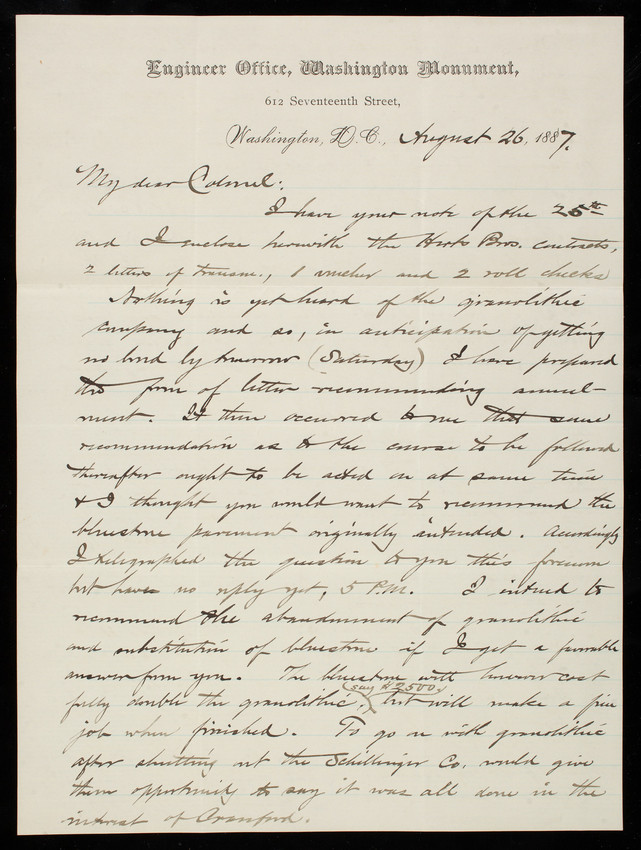 Engineer Office, Washington Monument,
612 Seventeenth Street,
Washington, D.C., August 26, 1887.
My dear Colonel:
I have your note of the 25th
and I enclose herewith the Bros. contracts,
2 letters of transm., 1 voucher and 2 roll checks
Nothing is yet heard of the granolithic
company and so, in anticipation of getting
no bond by tomorrow (Saturday) I have prepared
the form of letter recommending annul-
ment. It then occurred to me that some
recommendation as to the course to be followed
thereafter ought to be acted on at same time
& I thought you would want to recommend the
bluestone pavement originally intended. Accordingly
I telegraphed the question to you this forenoon
but have no reply yet, 5 P.M. I intend to
recommend the abandonment of granolithic
and substitution of bluestone if I get a favorable
answer from you. The bluestone will however cost
(say $2500)
fully double the granolithic, but will make a fine
job when finished. To go on with granolithic
after shutting out the Schillinger Co. would give
them opportunity to say it was all done in the
interest of Cranford.